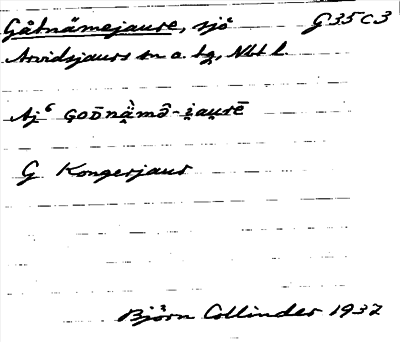 Gåbnåmejaure, sjö G35c3
Arvidsjaurs sn o. tg, Nbt l.
Aj⁶ GOD̄nạ̊̀mə̑-i̯au̯rē
G Kongerjaur
Björn Collinder 1937